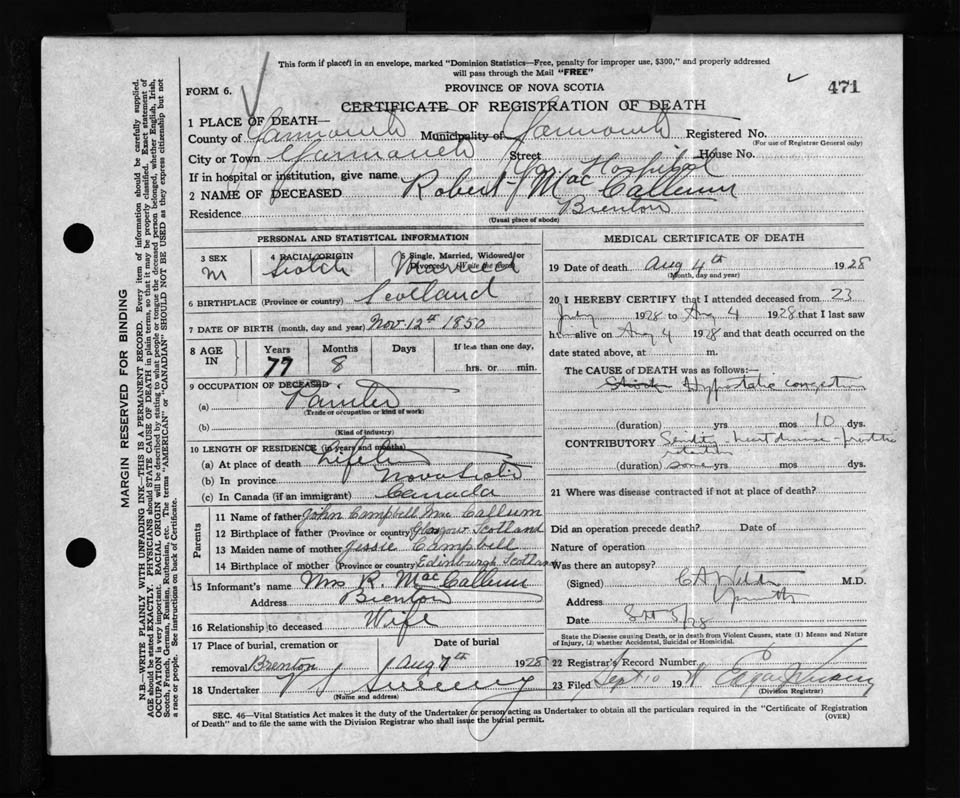 This form if placed in an envelope, marked "Dominion Statistics—Free, penalty for improper use, $300," and properly addressed
will pass through the Mail "FREE"
FORM 6.
PROVINCE OF NOVA SCOTIA
471
CERTIFICATE OF REGISTRATION OF DEATH
1 PLACE OF DEATH—
County of Yarmouth Municipality of Yarmouth Registered No.
(For use of Registrar General only)
City or Town Yarmouth Street House No.
If in hospital or institution, give name Hospital
2 NAME OF DECEASED Robert J MacCallum
Residence Brenton
(Usual place of abode)
PERSONAL AND STATISTICAL INFORMATION
3 SEX M
4 RACIAL ORIGIN Scotch
5 Single, Married, Widowed or Divorced (Write the word) Married
6 BIRTHPLACE (Province or country) Scotland
7 DATE OF BIRTH (month, day and year) Nov. 12th 1850
8 AGE IN Years 77 Months 8 Days If less than one day, hrs. or min.
9 OCCUPATION OF DECEASED
(a) Painter
(Trade or occupation or kind of work)
(b)
(Kind of industry)
10 LENGTH OF RESIDENCE (in years and months)
(a) At place of death
(b) In province Nova Scotia
(c) In Canada (if an immigrant) Canada
Parents
11 Name of father John Campbell MacCallum
12 Birthplace of father (Province or country) Glasgow Scotland
13 Maiden name of mother Jessie Campbell
14 Birthplace of mother (Province or country) Edinburgh Scotland
15 Informant's name Mrs R. MacCallum
Address Brenton
16 Relationship to deceased Wife
17 Place of burial, cremation or removal Brenton Date of burial Aug 7th 1928
18 Undertaker Sweeny
(Name and address)
MEDICAL CERTIFICATE OF DEATH
19 Date of death Aug 4th 1928
(Month, day and year)
20 I HEREBY CERTIFY that I attended deceased from 23
July 1928 to Aug 4 1928 that I last saw
h alive on Aug 4 1928 and that death occurred on the
date stated above, at m.
The CAUSE of DEATH was as follows:—
Hypostatic congestion
(duration) yrs mos 10 dys.
CONTRIBUTORY Senility - heart disease -
(duration) some yrs mos dys.
21 Where was disease contracted if not at place of death?
Did an operation precede death? Date of
Nature of operation
Was there an autopsy?
(Signed) M.D.
Address
Date 5/28
State the Disease causing Death, or in death from Violent Causes, state (1) Means and Nature
of Injury, (2) whether Accidental, Suicidal or Homicidal.
22 Registrar's Record Number
23 Filed Sept 10 19
(Division Registrar)
SEC. 46—Vital Statistics Act makes it the duty of the Undertaker or person acting as Undertaker to obtain all the particulars required in the "Certificate of Registration
of Death" and to file the same with the Division Registrar who shall issue the burial permit.
(OVER)
MARGIN RESERVED FOR BINDING
N.B.—WRITE PLAINLY WITH UNFADING INK—THIS IS A PERMANENT RECORD. Every item of information should be carefully supplied.
AGE should be stated EXACTLY. PHYSICIANS should STATE CAUSE OF DEATH in plain terms, so that it may be properly classified. Exact statement of
OCCUPATION is very important. RACIAL ORIGIN will be described by stating to what people or tongue the deceased person belonged, whether English, Irish,
Scotch, French, German, Russian, Ruthenian, etc. The terms "AMERICAN" or "CANADIAN" SHOULD NOT BE USED as they express citizenship but not
a race or people. See instructions on back of Certificate.